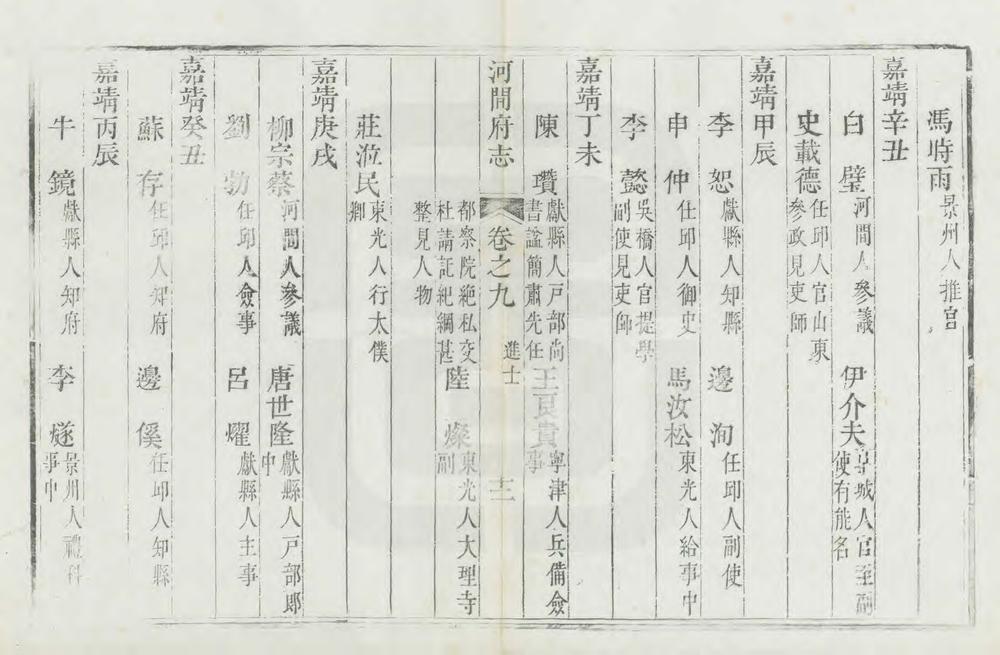 馮時雨 景州人推官
嘉靖辛丑
白璧 河間人參議 伊介夫 吳城人官至副使有能名
史載德 任邱人官山東參政見吏師
嘉靖甲辰
李恕 獻縣人知縣 邊洵 任邱人副使
申仲 仕邱人御史 馬汝松 東光人給事中
李懿 吳橋人官提學副使見吏師
嘉靖丁未
陳瓚 獻縣人戶部尚書謚簡肅先任 王良貴 寧津人兵備僉事
都察院絶私交杜請託紀綱甚整見人物 陸燦 東光人大理寺副
河間府志 卷之九 進士 十二
莊涖民 東光人行太僕卿
嘉靖庚戌
柳宗蔡 河間人參議 唐世隆 獻縣人戶部郎中
劉勃 任邱人僉事 呂燿 獻縣人主事
嘉靖癸丑
蘇存 任邱人知府 邊傒 任邱人知縣
嘉靖丙辰
牛鏡 獻縣人知府 李燧 景州人禮科事中